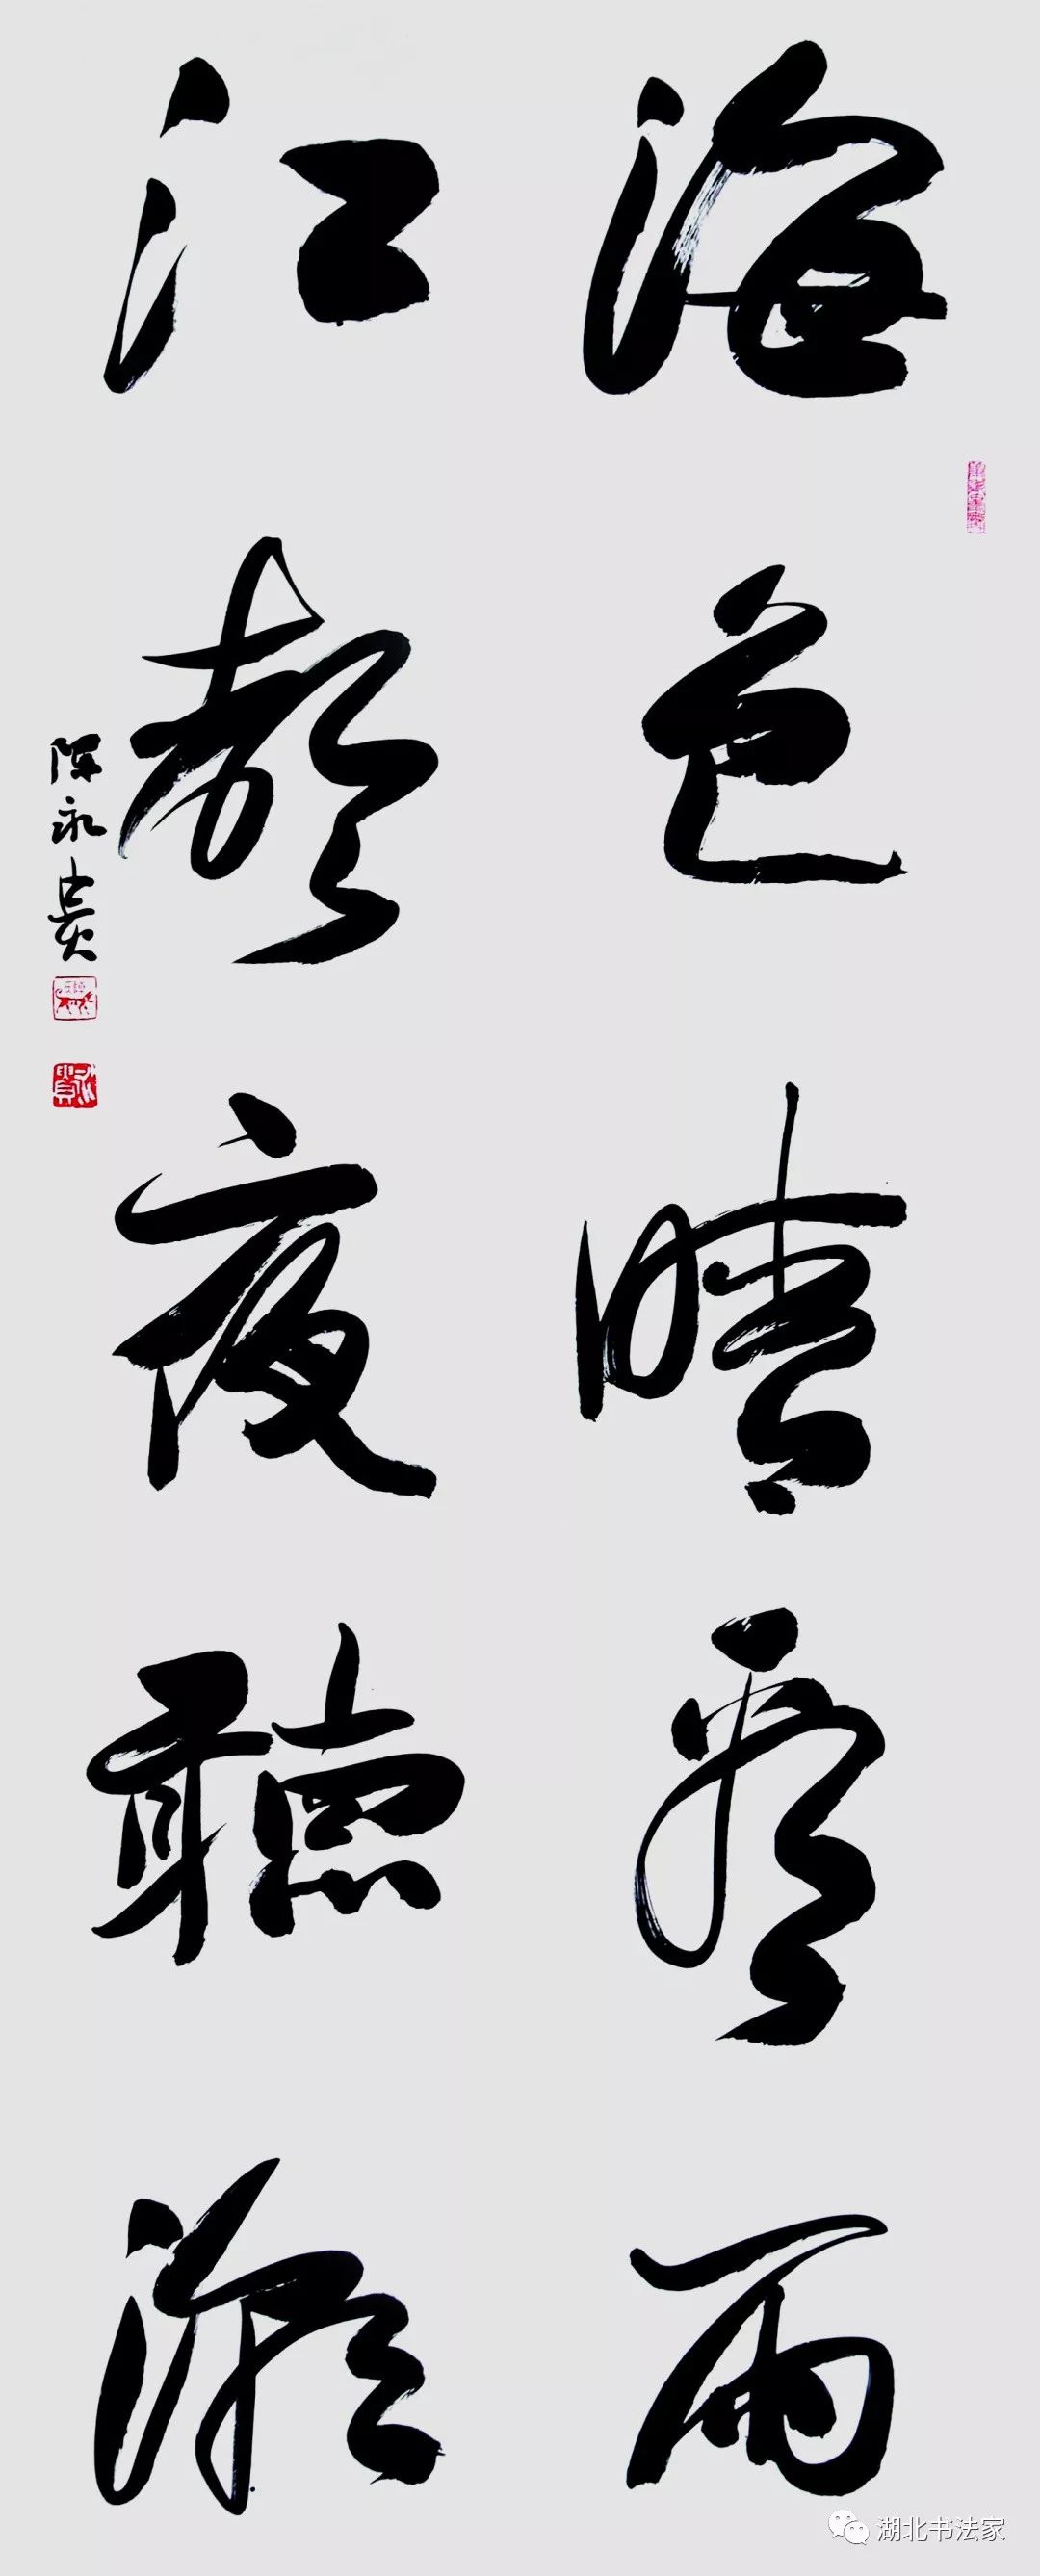 海色晴看雨
江聲夜聽潮
陈永贵
湖北书法家